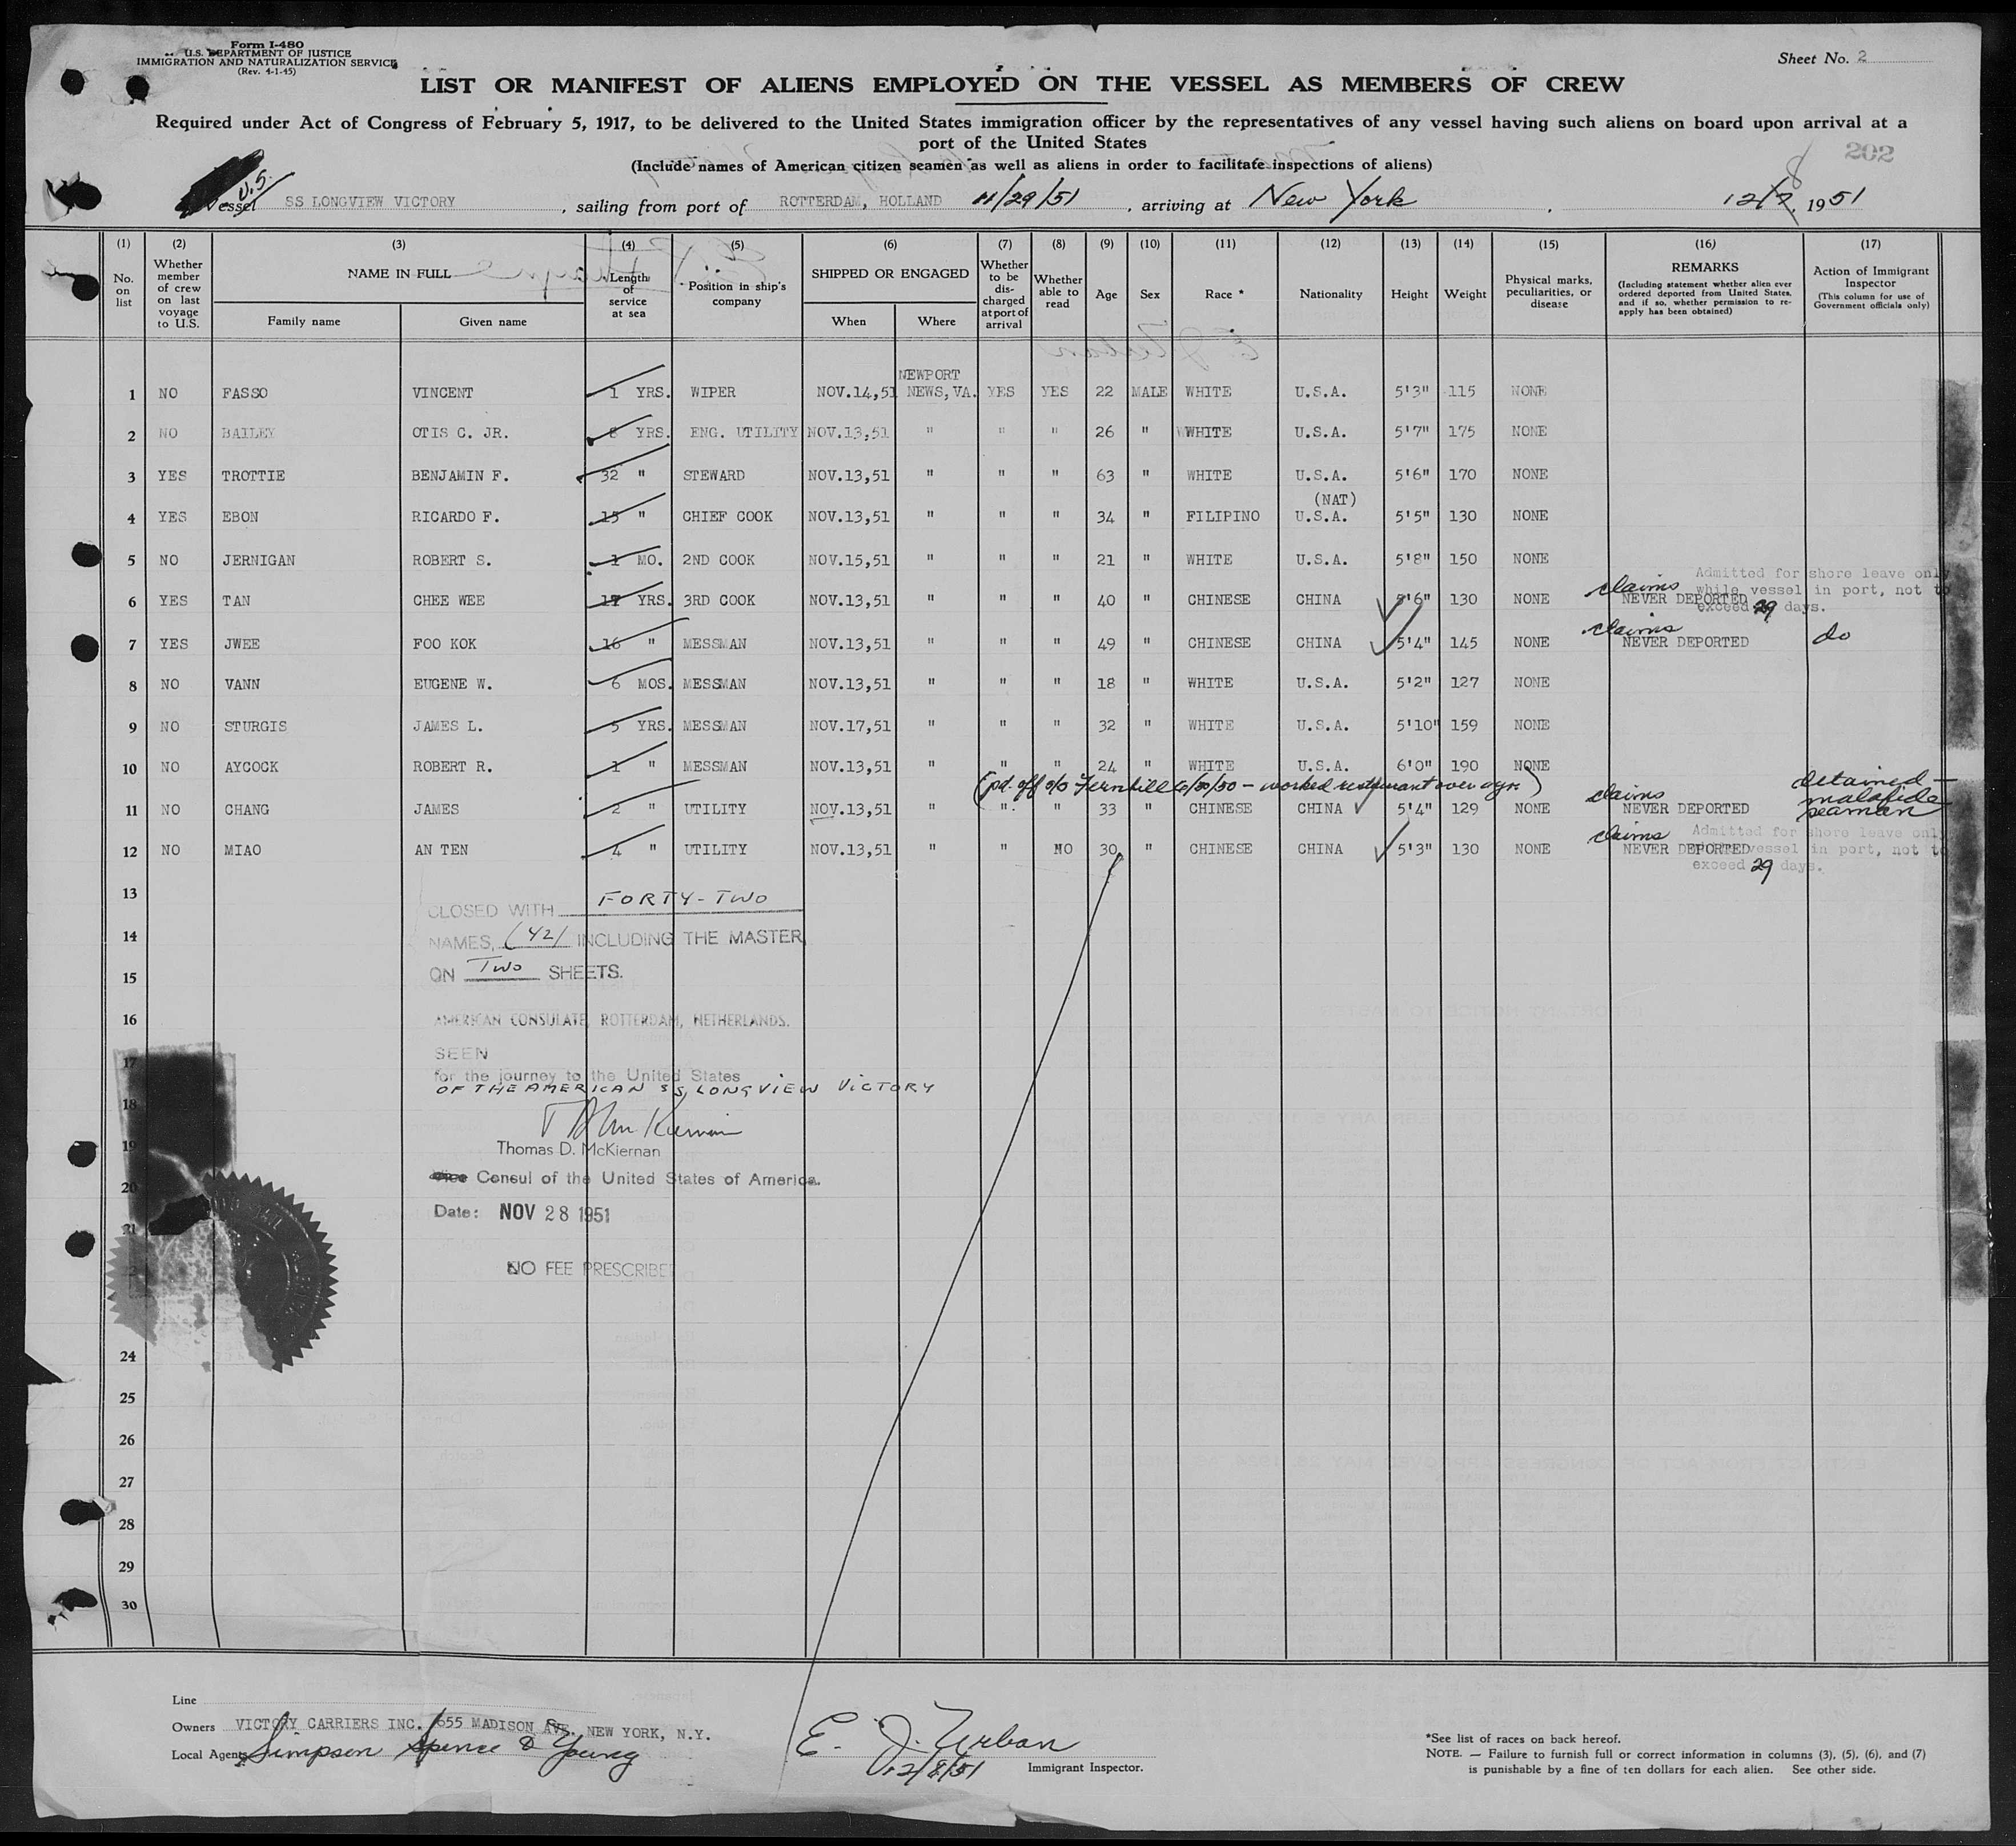 Form I-480
U.S. DEPARTMENT OF JUSTICE
IMMIGRATION AND NATURALIZATION SERVICE
(Rev. 4-1-45)
Sheet No. 2
LIST OR MANIFEST OF ALIENS EMPLOYED ON THE VESSEL AS MEMBERS OF CREW
Required under Act of Congress of February 5, 1917, to be delivered to the United States immigration officer by the representatives of any vessel having such aliens on board upon arrival at a
port of the United States
(Include names of American citizen seamen as well as aliens in order to facilitate inspections of aliens)
202
U.S.
Vessel SS LONGVIEW VICTORY, sailing from port of ROTTERDAM, HOLLAND 11/29/51, arriving at New York, 12/7 8, 1951
(1) (2) (3) (4) (5) (6) (7) (8) (9) (10) (11) (12) (13) (14) (15) (16) (17)
No. on list
Whether member of crew on last voyage to U.S.
NAME IN FULL
Family name
Given name
Length of service at sea
Position in ship's company
SHIPPED OR ENGAGED
When
Where
Whether to be discharged at port of arrival
Whether able to read
Age
Sex
Race *
Nationality
Height
Weight
Physical marks, peculiarities, or disease
REMARKS
(Including statement whether alien ever ordered deported from United States, and if so, whether permission to re-apply has been obtained)
Action of Immigrant Inspector
(This column for use of Government officials only)
NEWPORT
1 NO FASSO VINCENT 1 YRS. WIPER NOV.14,51 NEWS,VA. YES YES 22 MALE WHITE U.S.A. 5'3" 115 NONE
2 NO BAILEY OTIS C. JR. 8 YRS. ENG. UTILITY NOV.13,51 " " " 26 " WHITE U.S.A. 5'7" 175 NONE
3 YES TROTTIE BENJAMIN F. 32 " STEWARD NOV.13,51 " " " 63 " WHITE U.S.A. 5'6" 170 NONE
(NAT)
4 YES EBON RICARDO F. 15 " CHIEF COOK NOV.13,51 " " " 34 " FILIPINO U.S.A. 5'5" 130 NONE
5 NO JERNIGAN ROBERT S. 1 MO. 2ND COOK NOV.15,51 " " " 21 " WHITE U.S.A. 5'8" 150 NONE
Admitted for shore leave only
while vessel in port, not to
exceed 29 days.
6 YES TAN CHEE WEE 17 YRS. 3RD COOK NOV.13,51 " " " 40 " CHINESE CHINA 5'6" 130 NONE claims NEVER DEPORTED
7 YES JWEE FOO KOK 16 " MESSMAN NOV.13,51 " " " 49 " CHINESE CHINA 5'4" 145 NONE claims NEVER DEPORTED do
8 NO VANN EUGENE W. 6 MOS. MESSMAN NOV.13,51 " " " 18 " WHITE U.S.A. 5'2" 127 NONE
9 NO STURGIS JAMES L. 5 YRS. MESSMAN NOV.17,51 " " " 32 " WHITE U.S.A. 5'10" 159 NONE
10 NO AYCOCK ROBERT R. 1 " MESSMAN NOV.13,51 " " " 24 " WHITE U.S.A. 6'0" 190 NONE
(pd. off s/s Fernhill 6/30/50 - worked restaurant over a yr.)
11 NO CHANG JAMES 2 " UTILITY NOV.13,51 " " " 33 " CHINESE CHINA 5'4" 129 NONE claims NEVER DEPORTED detained - malafide seaman
12 NO MIAO AN TEN 4 " UTILITY NOV.13,51 " " NO 30 " CHINESE CHINA 5'3" 130 NONE claims NEVER DEPORTED
Admitted for shore leave only
vessel in port, not to
exceed 29 days.
13
CLOSED WITH FORTY-TWO
14
NAMES, (42) INCLUDING THE MASTER
15
ON Two SHEETS.
16
AMERICAN CONSULATE, ROTTERDAM, NETHERLANDS.
SEEN
17
for the journey to the United States
OF THE AMERICAN SS, LONGVIEW VICTORY
18
19
Thomas D. McKiernan
Vice Consul of the United States of America.
20
Date: NOV 28 1951
21
NO FEE PRESCRIBED
24
25
26
27
28
29
30
Line
Owners VICTORY CARRIERS INC. 655 MADISON AVE. NEW YORK, N.Y.
Local Agents Simpson Spence & Young
E. J. Urban
12/8/51 Immigrant Inspector.
*See list of races on back hereof.
NOTE. — Failure to furnish full or correct information in columns (3), (5), (6), and (7)
is punishable by a fine of ten dollars for each alien. See other side.